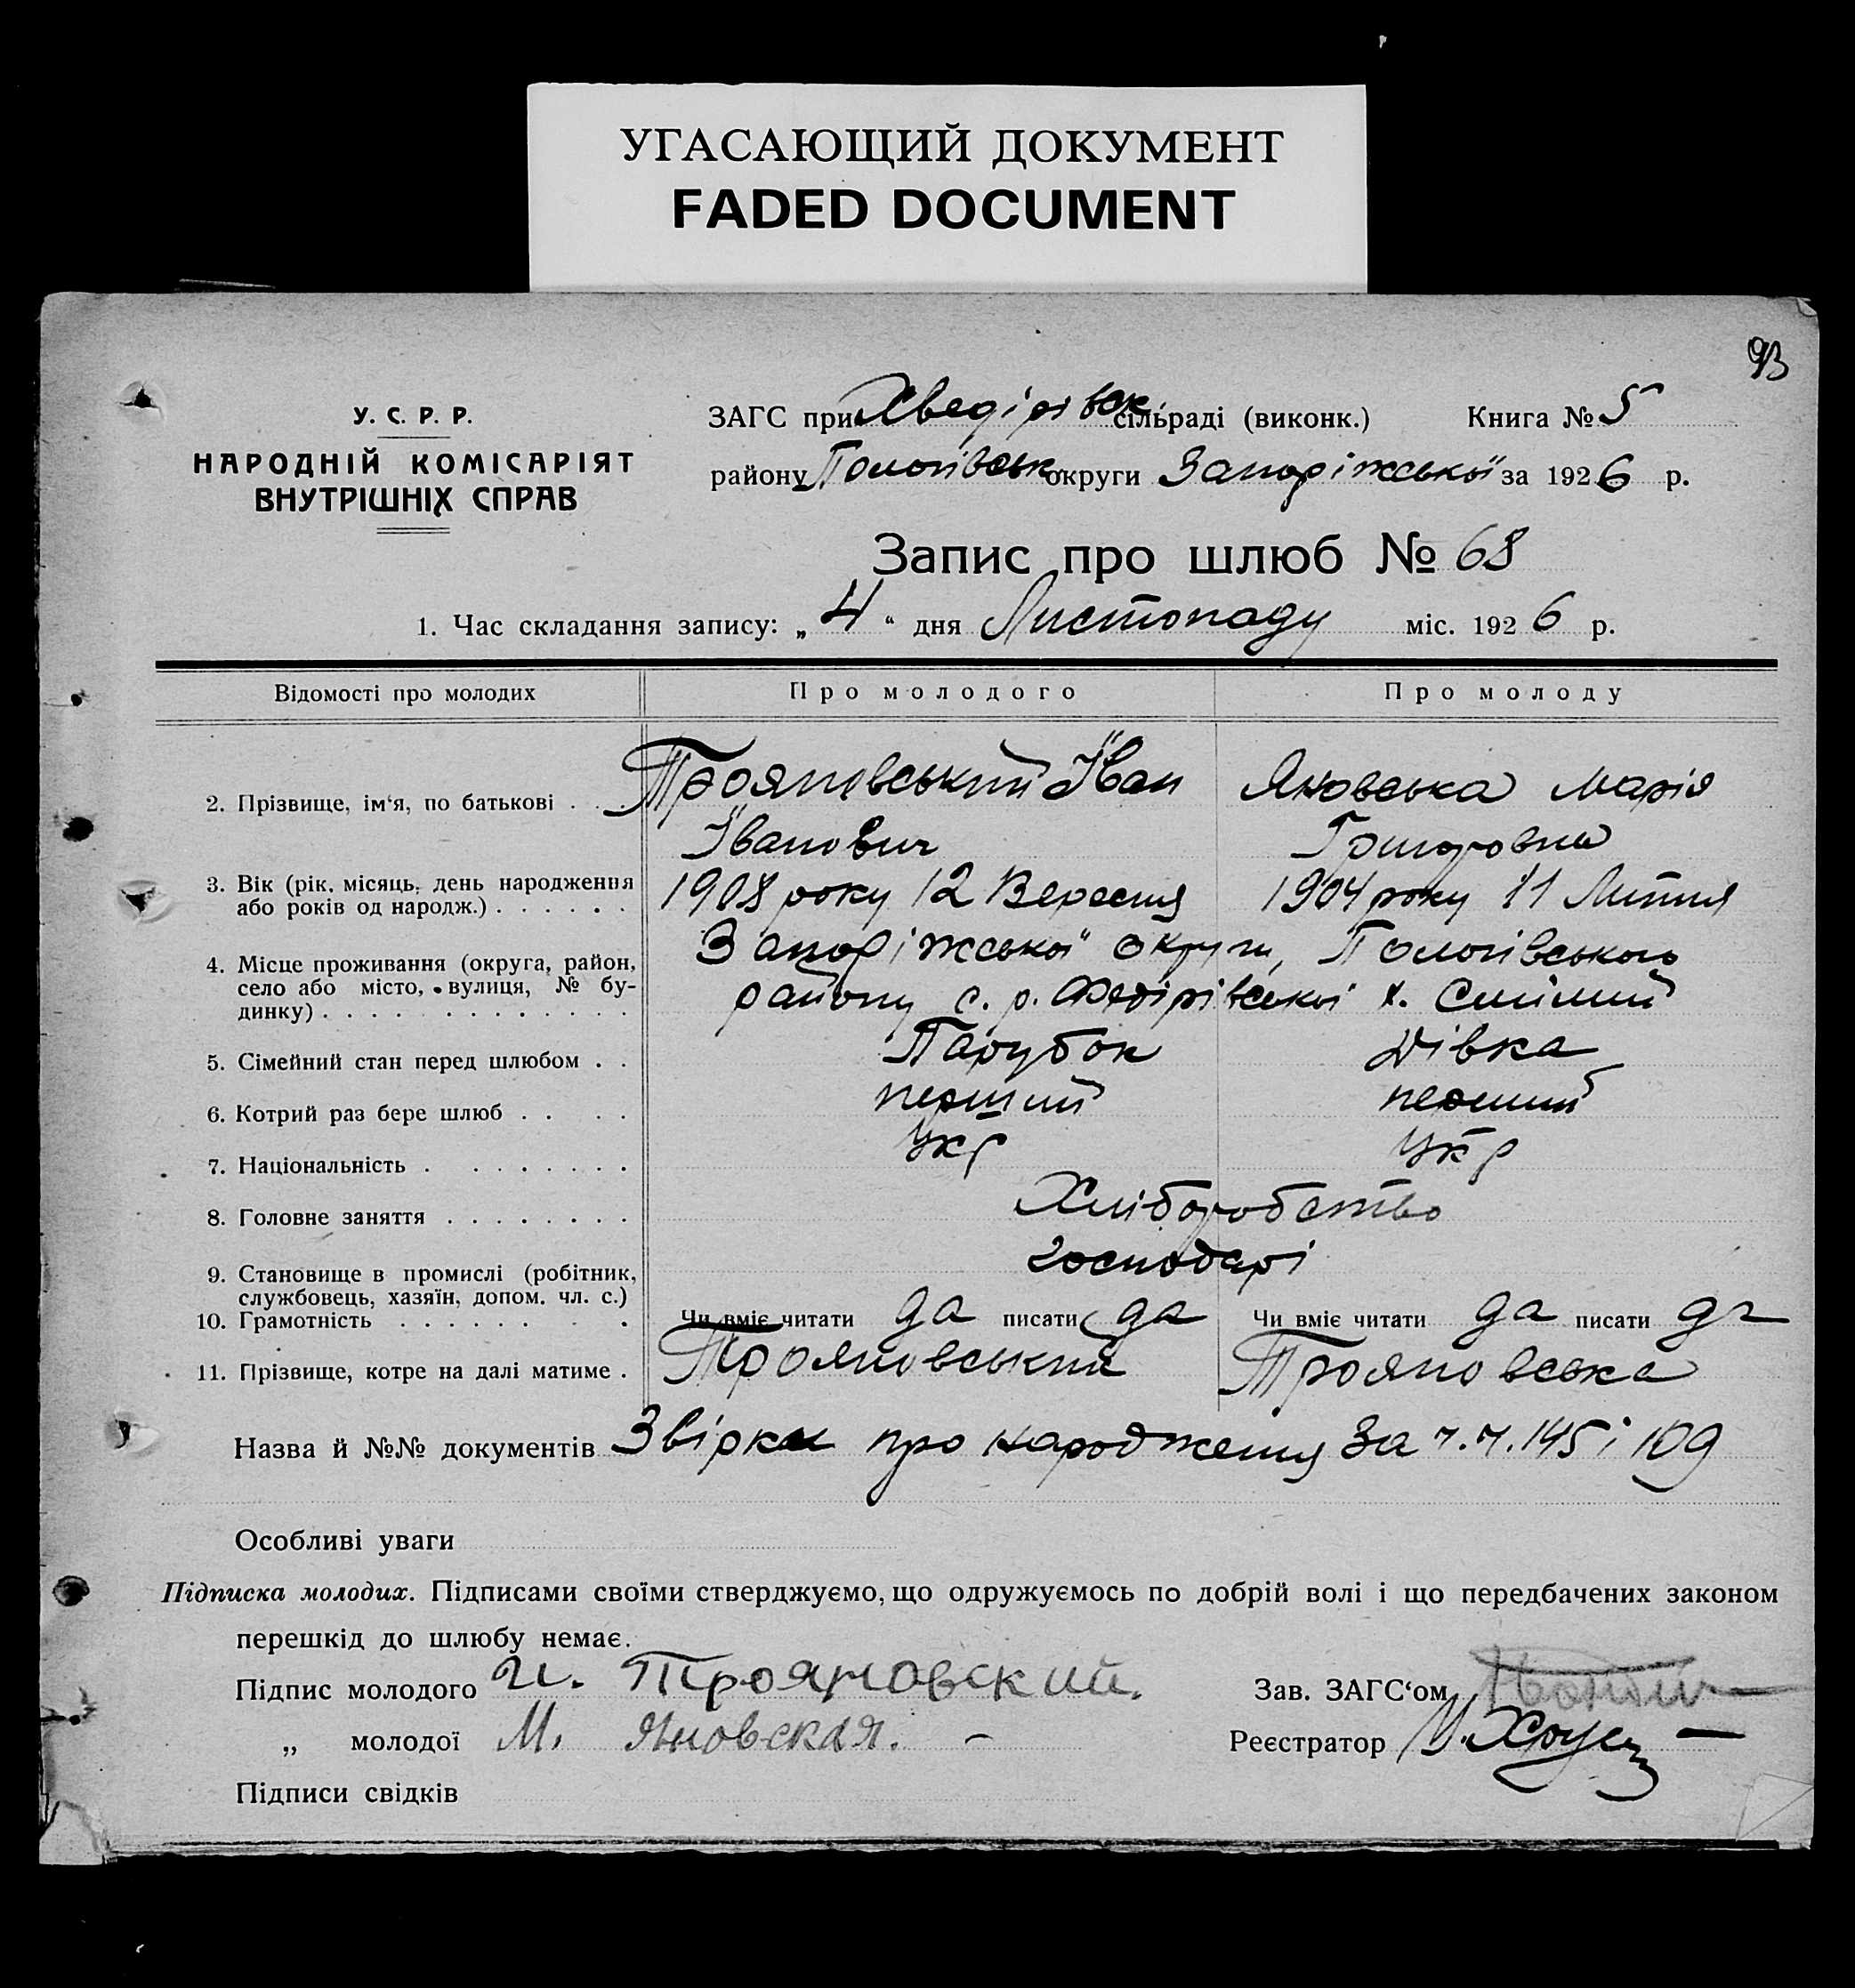 УГАСАЮЩИЙ ДОКУМЕНТ
FADED DOCUMENT
93
У. С. Р. Р.
НАРОДНІЙ КОМІСАРІЯТ
ВНУТРІШНІХ СПРАВ
ЗАГС при Хведірівск. сільраді (виконк.) Книга № 5
району Пологівськ округи Запоріжської за 1926 р.
Запис про шлюб № 68
1. Час складання запису: „4“ дня Листопаду міс. 1926 р.
Відомості про молодих Про молодого Про молоду
2. Прізвище, ім‘я, по батькові . . Трояновський Іван Яновська Марія
Іванович Григоровна
3. Вік (рік, місяць, день народження 1908 року 12 Вересня 1904 року 11 Липня
або років од народж.) . . . . . .
4. Місце проживання (округа, район, Запоріжської округи, Пологівського
село або місто, вулиця, № бу- району с. р. Федірівської х.
динку) . . . . . . . . . . . . .
5. Сімейний стан перед шлюбом . . Парубок Дівка
6. Котрий раз бере шлюб . . . . перший перший
7. Національність . . . . . . . . Укр Укр
8. Головне заняття . . . . . . . . Хліборобство
9. Становище в промислі (робітник, господарі
службовець, хазяїн, допом. чл. с.)
10. Грамотність . . . . . . . . Чи вміє читати да писати да Чи вміє читати да писати да
11. Прізвище, котре на далі матиме . Трояновський Трояновська
Назва й №№ документів Звірки про народження за ч.ч. 145 і 109
Особливі уваги
Підписка молодих. Підписами своїми стверджуємо, що одружуємось по добрій волі і що передбачених законом
перешкід до шлюбу немає.
Підпис молодого И. Трояновский. Зав. ЗАГС‘ом
„ молодої М. Яновская. – Реєстратор
Підписи свідків